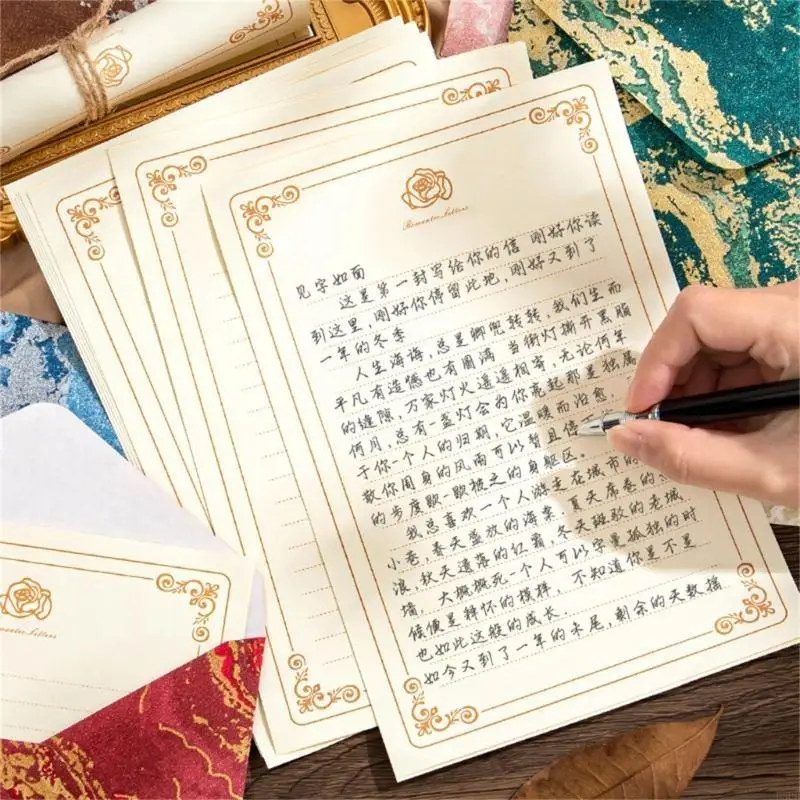 Romantic Letters
见字如面
这是第一封写给你的信 刚好你读
到这里，刚好你停留此地，刚好又到了
一年的冬季
人生海海，总是兜兜转转，我们生而
平凡有遗憾也有圆满 当街灯撕开黑脂
的缝隙，万家灯火遥遥相寄，无论何年
何月，总有一盏灯会为你亮起那是独属
于你一个人的归期，它温暖而治愈，
散你周身的风雨可以暂且停
的步履歇一歇疲乏的身躯区。
我总喜欢一个人游走在城市的
小巷，春天盛放的海棠，夏天席卷的
浪，秋天遗落的红霜，冬天斑驳的老城
墙，大概概死一个人可以学量孤独的时
候便是释怀的模样，不知道你是不是
也如此这般的成长.
如今又到了一年的末尾，剩余的天数摇